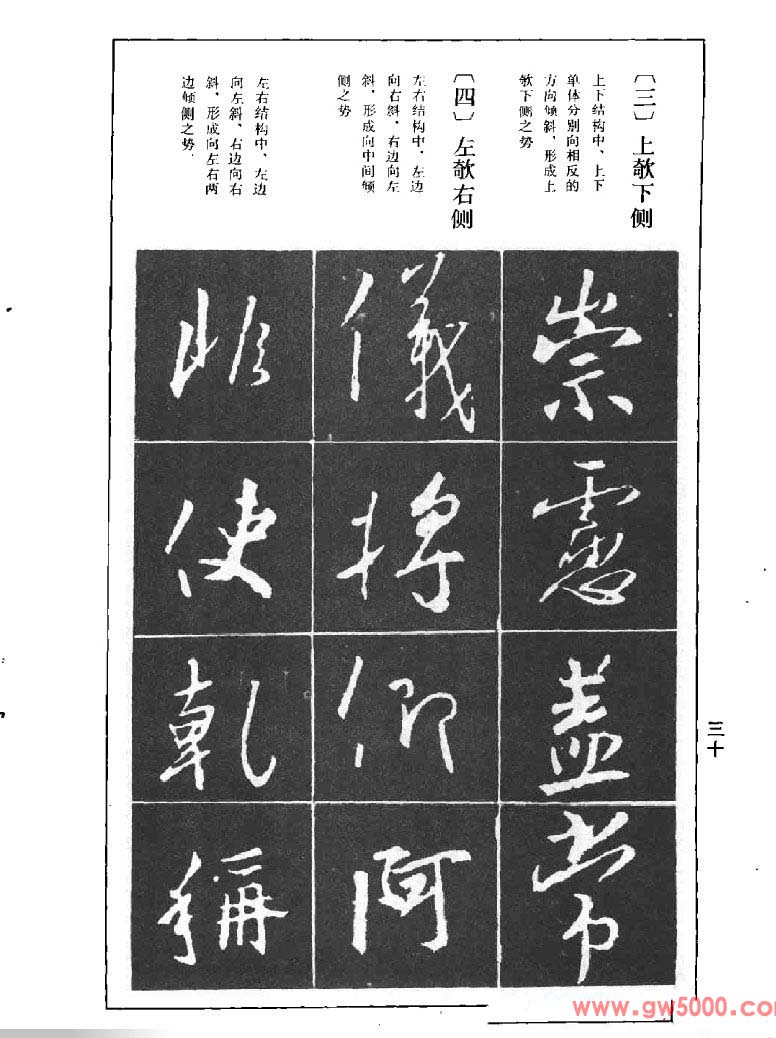 〔三〕上欹下侧
上下结构中，上下
单体分别向相反的
方向倾斜，形成上
欹下侧之势
〔四〕左欹右侧
左右结构中，左边
向右斜，右边向左
斜，形成向中间倾
侧之势
左右结构中，左边
向左斜，右边向右
斜，形成向左右两
边倾侧之势．
崇
蓋
常
儀
將
仰
阿
使
乾
稱
三十
www.gw5000.com